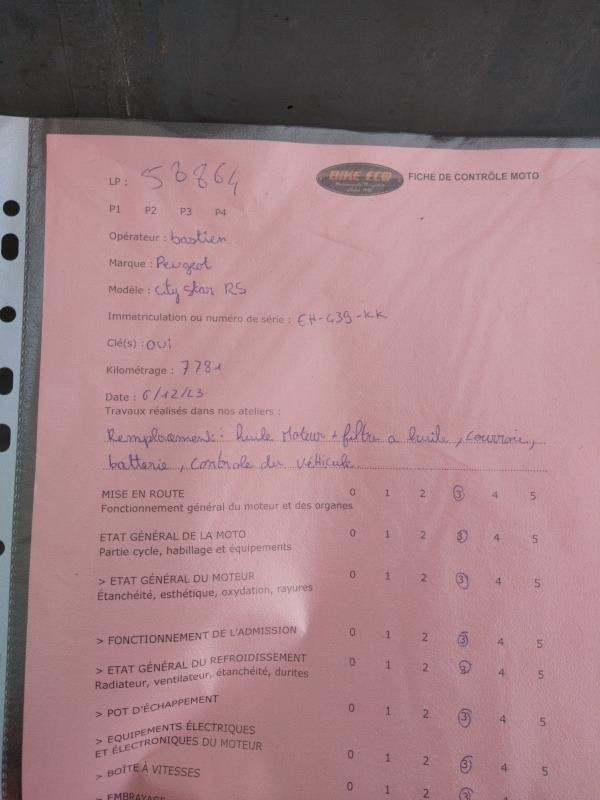 LP : 58864
BIKE ECO
FICHE DE CONTRÔLE MOTO
P1 P2 P3 P4
Opérateur : bastien
Marque : Peugeot
Modèle : City Star RS
Immatriculation ou numéro de série : EH-439-KK
Clé(s) : oui
Kilométrage : 7781
Date : 6/12/23
Travaux réalisés dans nos ateliers :
Remplacement : huile Moteur + filtre a huile, courroie,
batterie, controle du véhicule.
MISE EN ROUTE 0 1 2 3 4 5
Fonctionnement général du moteur et des organes
ETAT GÉNÉRAL DE LA MOTO 0 1 2 3 4 5
Partie cycle, habillage et équipements
> ETAT GÉNÉRAL DU MOTEUR 0 1 2 3 4 5
Étanchéité, esthétique, oxydation, rayures
> FONCTIONNEMENT DE L'ADMISSION 0 1 2 3 4 5
> ETAT GÉNÉRAL DU REFROIDISSEMENT 0 1 2 3 4 5
Radiateur, ventilateur, étanchéité, durites
> POT D'ÉCHAPPEMENT 0 1 2 3 4 5
> EQUIPEMENTS ÉLECTRIQUES
ET ÉLECTRONIQUES DU MOTEUR 0 1 2 3 4 5
> BOÎTE À VITESSES 0 1 2 3 4 5
> EMBRAYAGE